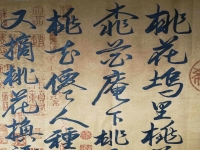 桃花塢里桃
桃花庵下桃
桃花僊人種
又摘桃花